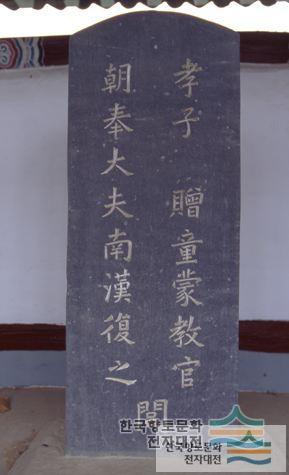 孝子 贈童蒙教官
朝奉大夫南漢復之
閭
한국향토문화
전자대전
한국향토문화
전자대전